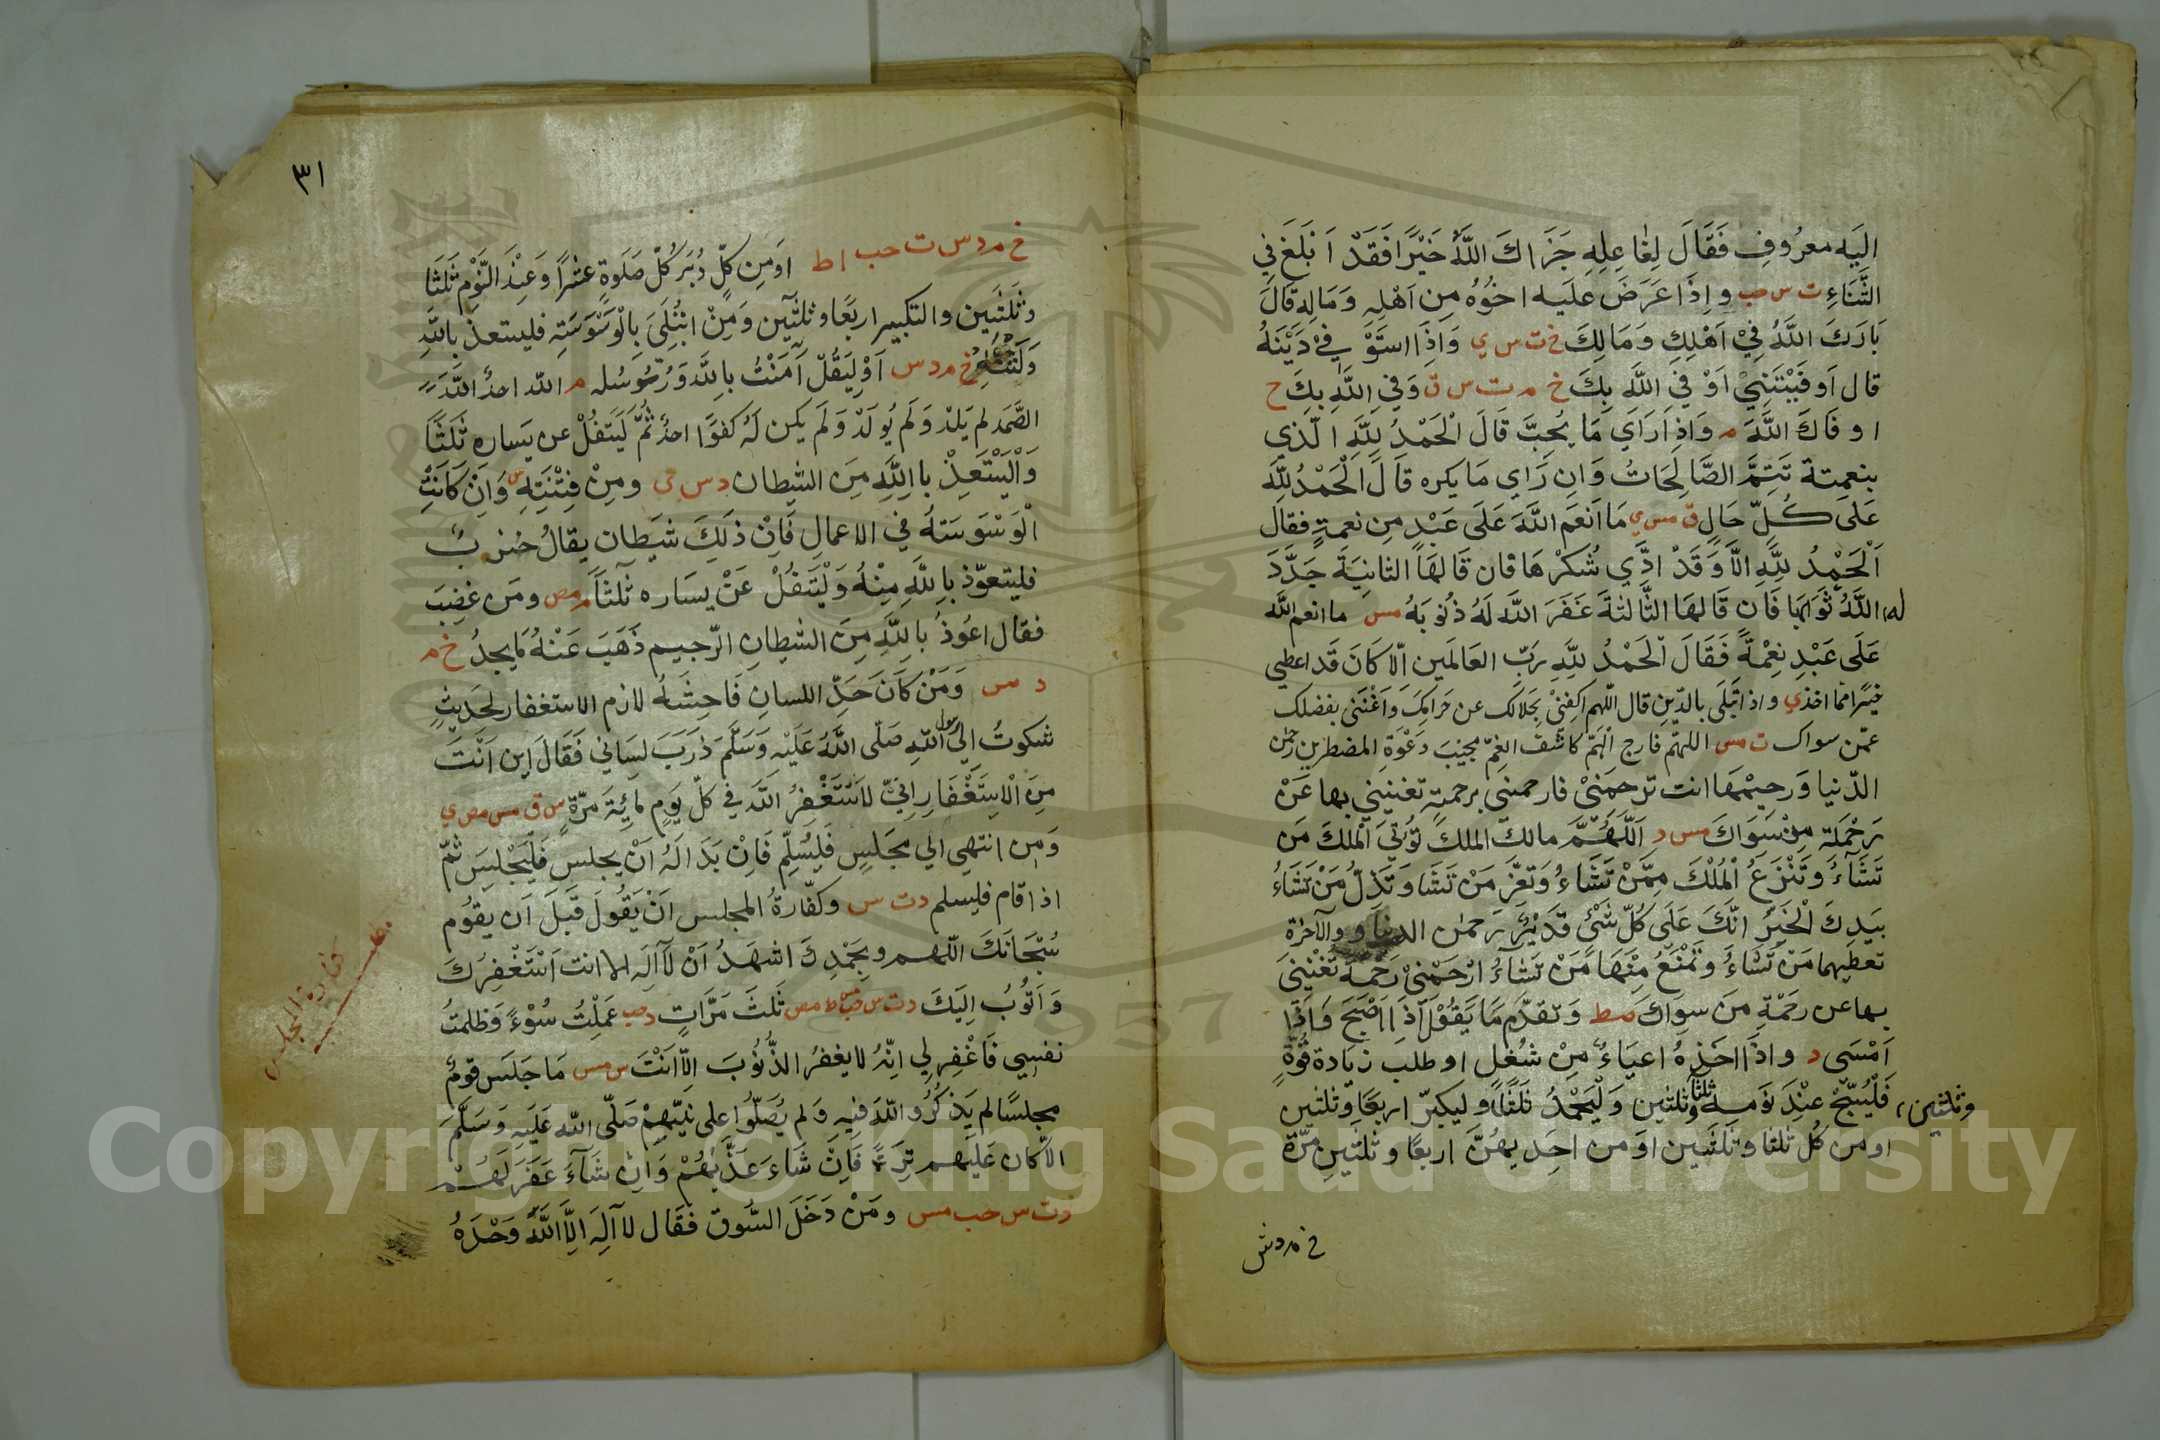 اليه معروف فقال لفاعله جزاك الله خيرا فقد ابلغ في
الثناء ت س حب واذا عرض عليه اخوه من اهله وماله قال
بارك الله في اهلك ومالك خ ت س ي واذا استوفي دينه
قال اوفيتني اوفي الله بك خ م ت س ق وفي الله بك خ
اوفاك الله م واذا راي ما يحب قال الحمد لله الذي
بنعمته تتم الصالحات وان راي ما يكره قال الحمد لله
على كل حال ق مس ي ما انعم الله على عبد من نعمة فقال
الحمد لله الا وقد ادي شكرها فان قالها الثانية جدد
الله له ثوابها فان قالها الثالثة غفر الله له ذنوبه مس ما انعم الله
على عبد نعمة فقال الحمد لله رب العالمين الا كان قد اعطي
خيرا مما اخذ ي واذا ابتلى بالدين قال اللهم اكفني بحلالك عن حرامك واغنني بفضلك
عمن سواك ت مس اللهم فارج الهم كاشف الغم مجيب دعوة المضطرين رحمن
الدنيا ورحيمها انت ترحمني فارحمني برحمة تغنيني بها عن
رحمة من سواك مس د اللهم مالك الملك تؤتي الملك من
تشاء وتنزع الملك ممن تشاء وتعز من تشا وتذل من تشاء
بيدك الخير انك على كل شئ قدير رحمن الدنيا والآخرة
تعطيهما من تشاء وتمنع منها من تشاء ارحمني رحمة تغنيني
بها عن رحمة من سواك صط وتقدم ما يقول اذا اصبح واذا
امسى د واذا اخذه اعياء من شغل او طلب زيادة قوة
فليسبح عند نومه ثلثا وثلثين وليحمد ثلثا وليكبر اربعا وثلثين
وثلثين
او من كل ثلثا وثلثين او من احديهن اربعا وثلثين مرة
خ م د س
٣١
خ م د س ت حب ا ط او من كل دبر كل صلوة عشرا وعند النوم ثلثا
وثلثين والتكبير اربعا وثلثين ومن ابتلي بالوسوسة فليستعذ بالله
ولينته خ م د س او ليقل آمنت بالله ورسوله م الله احد الله
الصمد لم يلد ولم يولد ولم يكن له كفوا احد ثم ليتفل عن يساره ثلثا
واليستعذ بالله من الشيطان د س ي ومن فتنته س وان كانت
الوسوسة في الاعمال فان ذلك شيطان يقال خنزب
فليتعوذ بالله منه وليتفل عن يساره ثلثا م مص ومن غضب
فقال اعوذ بالله من الشيطان الرجيم ذهب عنه ما يجد خ م
د س ومن كان حد اللسان فاحشه لازم الاستغفار لحديث
شكوت الى رسول الله صلى الله عليه وسلم ذرب لساني فقال اين انت
من الاستغفار اني لاستغفر الله في كل يوم مائة مرة س ق مس مص ي
ومن انتهي الي مجلس فليسلم فان بدا له ان يجلس فليجلس ثم
اذا قام فليسلم د ت س وكفارة المجلس ان يقول قبل ان يقوم
سبحانك اللهم وبحمدك اشهد ان لا اله الا انت استغفرك
كفارة المجلس
واتوب اليك د ت س حب مس ط مص ثلث مرات د حب عملت سوء وظلمت
نفسي فاغفر لي انه لا يغفر الذنوب الا انت س مس ما جلس قوم
مجلسا لم يذكروا الله فيه ولم يصلوا على نبيهم صلى الله عليه وسلم
الا كان عليهم ترة فان شاء عذبهم وان شاء غفر لهم
د ت س حب مس ومن دخل السوق فقال لا اله الا الله وحده
1957
Copyright © King Saud University